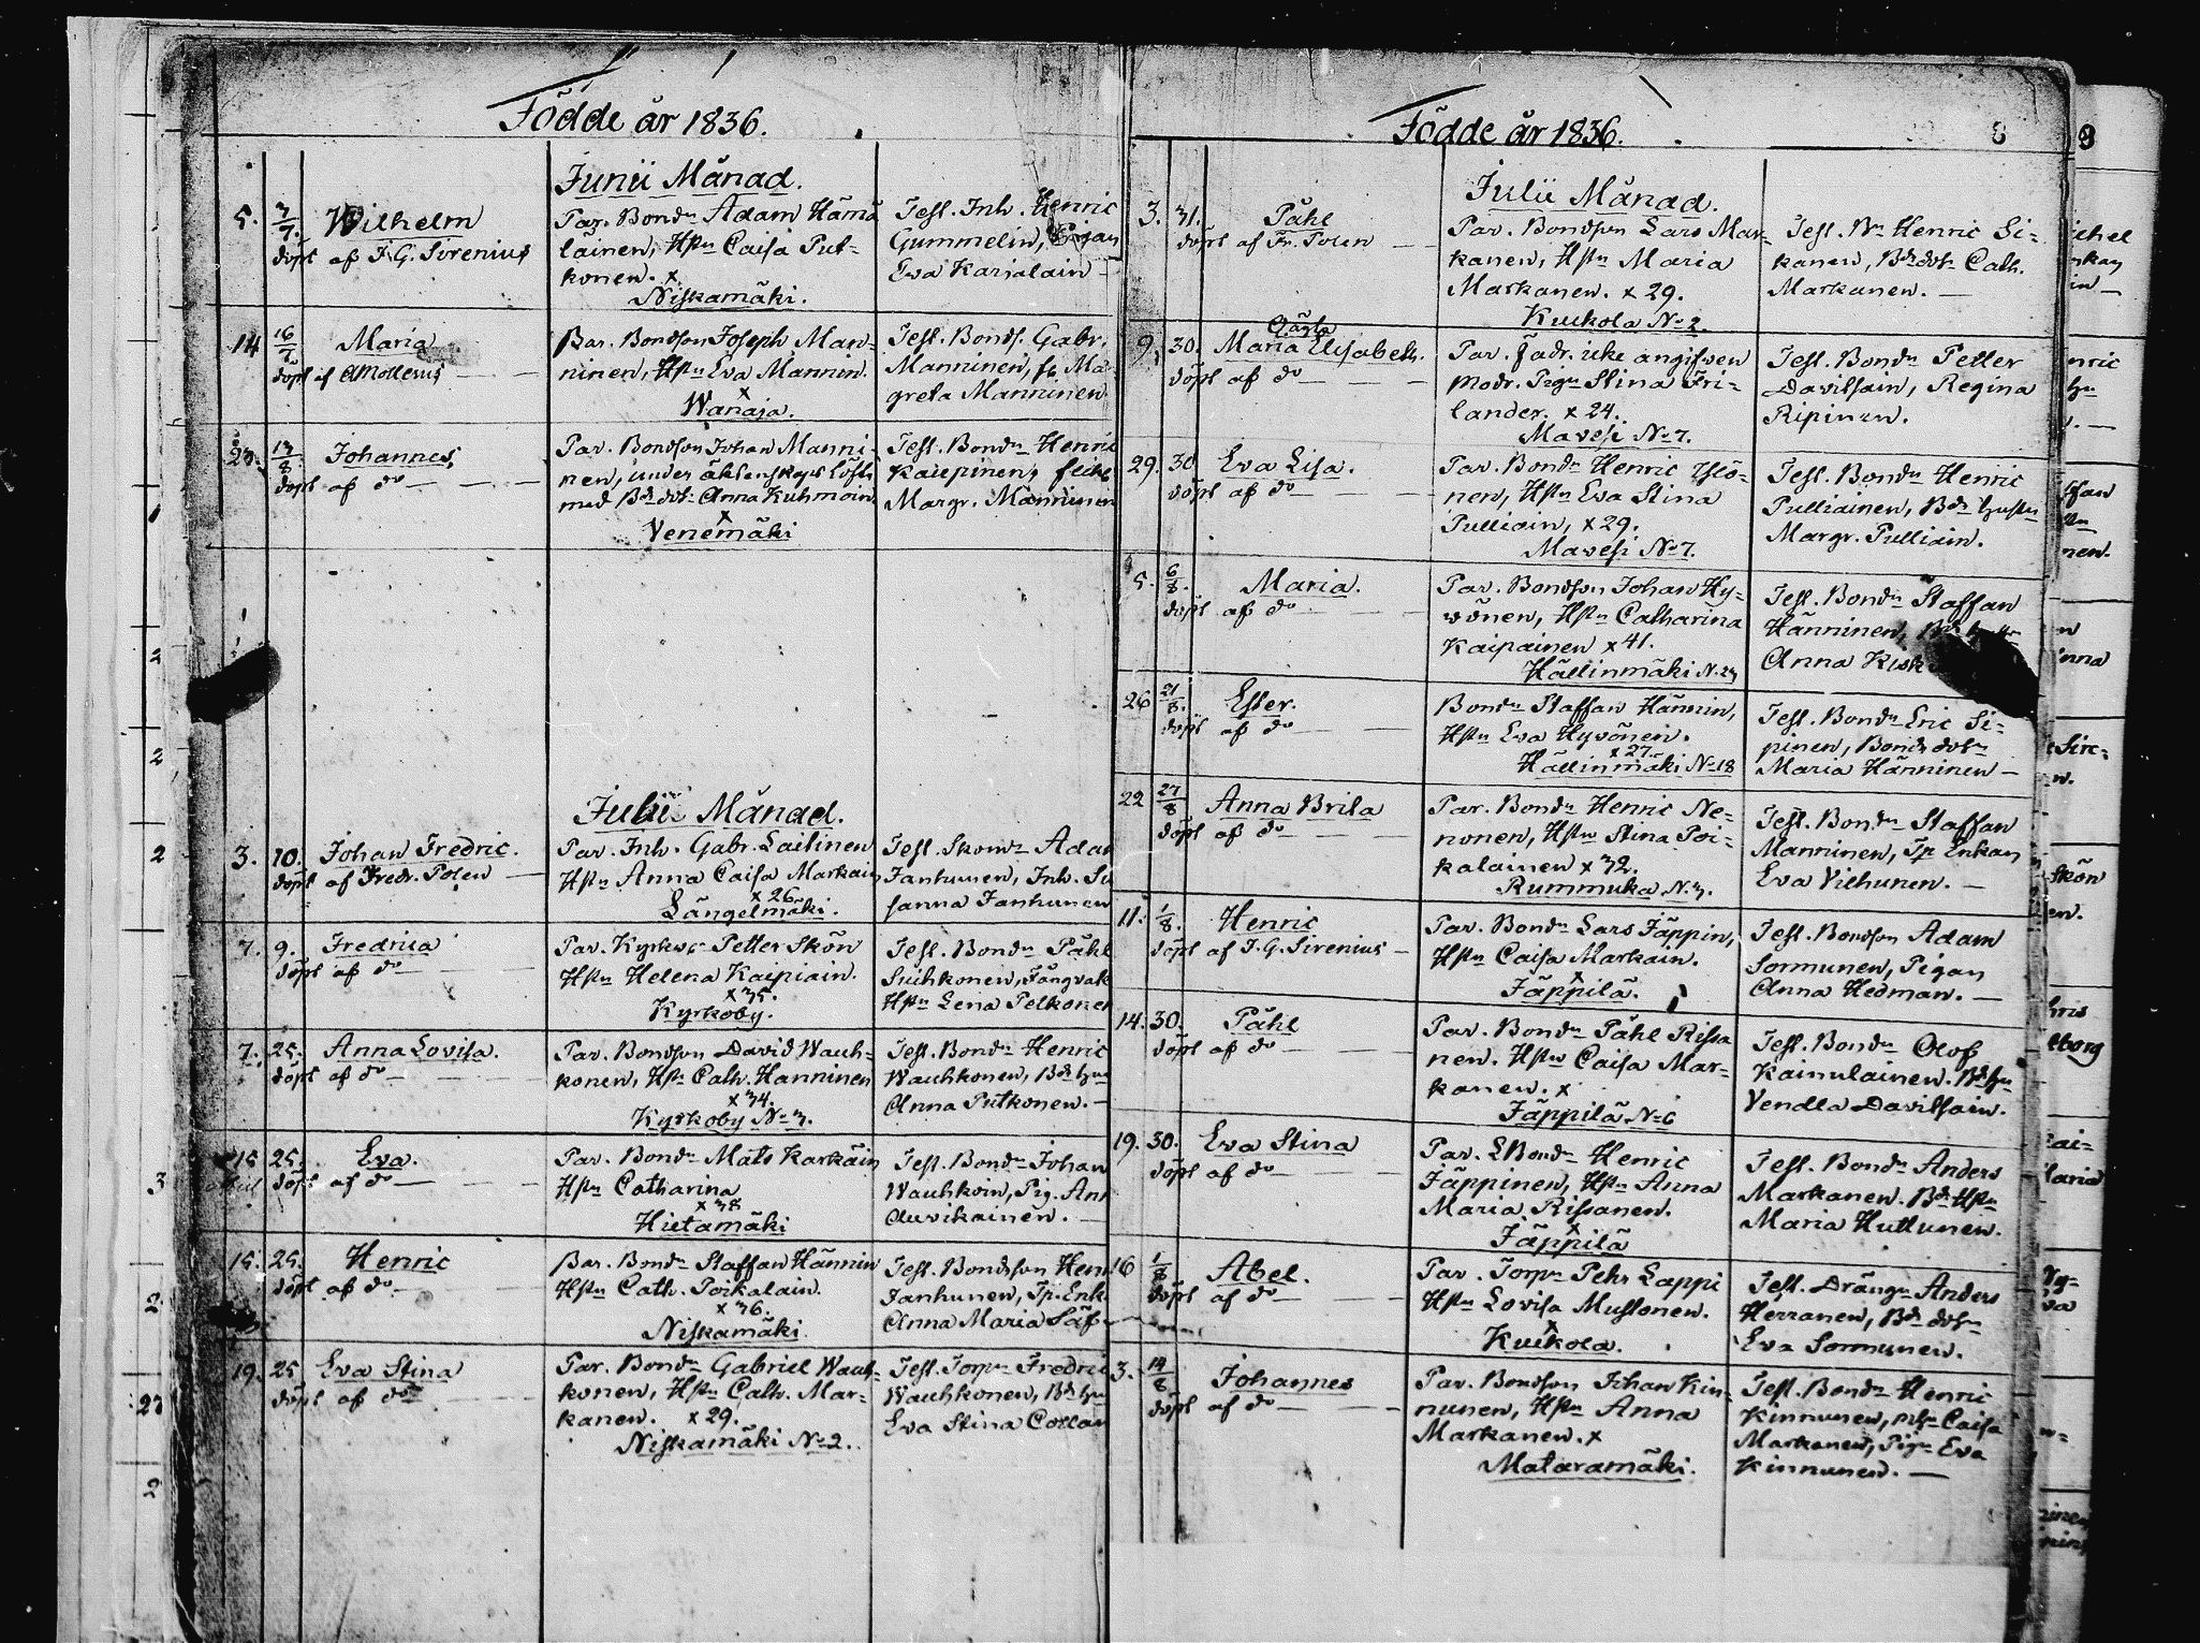 Födde år 1836.
Junii Månad.
5. 3/7. Wilhelm
döpt af J. G. Sirenius
Par. Bondn Adam Hämä
läinen, Hstn Caisa Put=
konen. x
Niskamäki.
Test. Inh. Henric
Gummelin, Pigan
Eva Karjalain=
14 16/7. Maria
döpt af
Par. Bondson Joseph Man=
ninen, Hstn Eva Mannin.
x
Wanaja.
Test. Bonds. Gabr.
Manninen, Ma
greta Manninen
13/8. Johannes,
döpt af do
Par. Bondson Johan Manni=
nen, under äktenskaps löfte
med Bdr dotr Anna Kuhmoin
x
Venemäki
Test. Bondn Henric
Kaupinen,
Margr. Manninen
Julii Månad.
3. 10. Johan Fredric.
döpt af Fredr. Polen
Par. Inh. Gabr. Laitinen
Hstn Anna Caisa Markain
x 26
Längelmäki.
Test. Skomr Adam
Janhunen, Inh. Su
sanna Janhunen
7. 9. Fredrica
döpt af do
Par. Kyrkov. Petter Skön
Hstn Helena Kaipiain.
x 35.
Kyrkoby.
Test. Bondn Påhl
Siuhkonen, Fångvak
Hstn Lena Pelkonen
7. 25. Anna Lovisa.
döpt af do
Par. Bondson David Wauh=
konen, Hstn Cath. Hänninen
x 34.
Kyrkoby No 3.
Test. Bondn Henric
Wauhkonen, Bdr hu
Anna Putkonen.
15 25. Eva.
döpt af do
Par. Bondn Mats Karkäin
Hstn Catharina
x 38
Hietamäki
Test. Bondn Johan
Wauhkoin, Pig. Ann
Auvikainen.
15. 25. Henric
döpt af do
Par. Bondn Staffan Hännin
Hstn Cath. Poikalain.
x 36.
Niskamäki.
Test. Bondson Hen
Janhunen, Tp. Enk.
Anna Maria Säf
19. 25 Eva Stina
döpt af do
Par. Bondn Gabriel Wauh=
konen, Hstn Cath. Mar=
kanen. x 29.
Niskamäki No 2.
Test. Torpr Fredric
Wauhkonen, Bdr hu
Eva Stina Collan
Födde år 1836.
8
9
Julii Månad.
3. 31. Påhl
döpt af Fr. Polen
Par. Bondson Lars Mar=
kanen, Hstn Maria
Markanen. x 29.
Kuikola No 2.
Test. Bn Henric Si=
kanen, Bdr dotr Cath.
Markanen.
9. 30. Maria Elisabeth.
döpt af do
Par. fadr. icke angifven
Modr. Pign Stina Fri=
lander. x 24.
Mavesi No 7.
Test. Bondn Petter
Davitsain, Regina
Ripinen.
29. 30 Eva Lisa.
döpt af do
Par. Bondn Henric Ylö=
nen, Hstn Eva Stina
Pulliain, x 29.
Mavesi No 7.
Test. Bondn Henric
Pulliainen, Bdr hustru
Margr. Pulliain.
5. 6/8. Maria.
döpt af do
Par. Bondson Johan Hy=
vönen, Hstn Catharina
Kaipainen x 41.
Hällinmäki
Test. Bondn Staffan
Hänninen,
Anna
26 21/8. Ester.
döpt af do
Bondn Staffan Hännin,
Hstn Eva Hyvönen.
x 27.
Hällinmäki No 18
Test. Bondn Eric Si=
pinen, Bonde dotr
Maria Hänninen
22 27/8 Anna Brita
döpt af do
Par. Bondn Henric Ne=
nonen, Hstn Stina Poi=
kalainen x 32.
Rummuka N. 3.
Test. Bondn Staffan
Manninen, Tp Enkan
Eva Vichunen.
11. 1/8. Henric
döpt af J. G. Sirenius
Par. Bondn Lars Jäppin,
Hstn Caisa Markain.
x
Jäppilä.
Test. Bondson Adam
Sormunen, Pigan
Anna Hedman.
14. 30. Påhl
döpt af do
Par. Bondn Påhl Rissa
nen. Hstn Caisa Mar=
kanen. x
Jäppilä No 6
Test. Bondn Olof
Kainulainen. Bdr hu
Vendla Davitsain.
19. 30. Eva Stina
döpt af do
Par. LBondn Henric
Jäppinen, Hstn Anna
Maria Rissanen.
x
Jäppilä
Test. Bondn Anders
Markanen. Bdr Hstn
Maria Huttunen.
16 1/8 Abel.
döpt af do
Par. Torpr Pehr Lappi
Hstn Lovisa Mustonen.
x
Kuikola.
Test. Drängn Anders
Herranen, Bdr dotr
Eva Sormunen.
3. 14/8 Johannes
döpt af do
Par. Bondson Johan Kin=
nunen, Hstn Anna
Markanen. x
Mataramäki.
Test. Bondn Henric
Kinnunen, Caisa
Markanen, Pign Eva
Kinnunen.